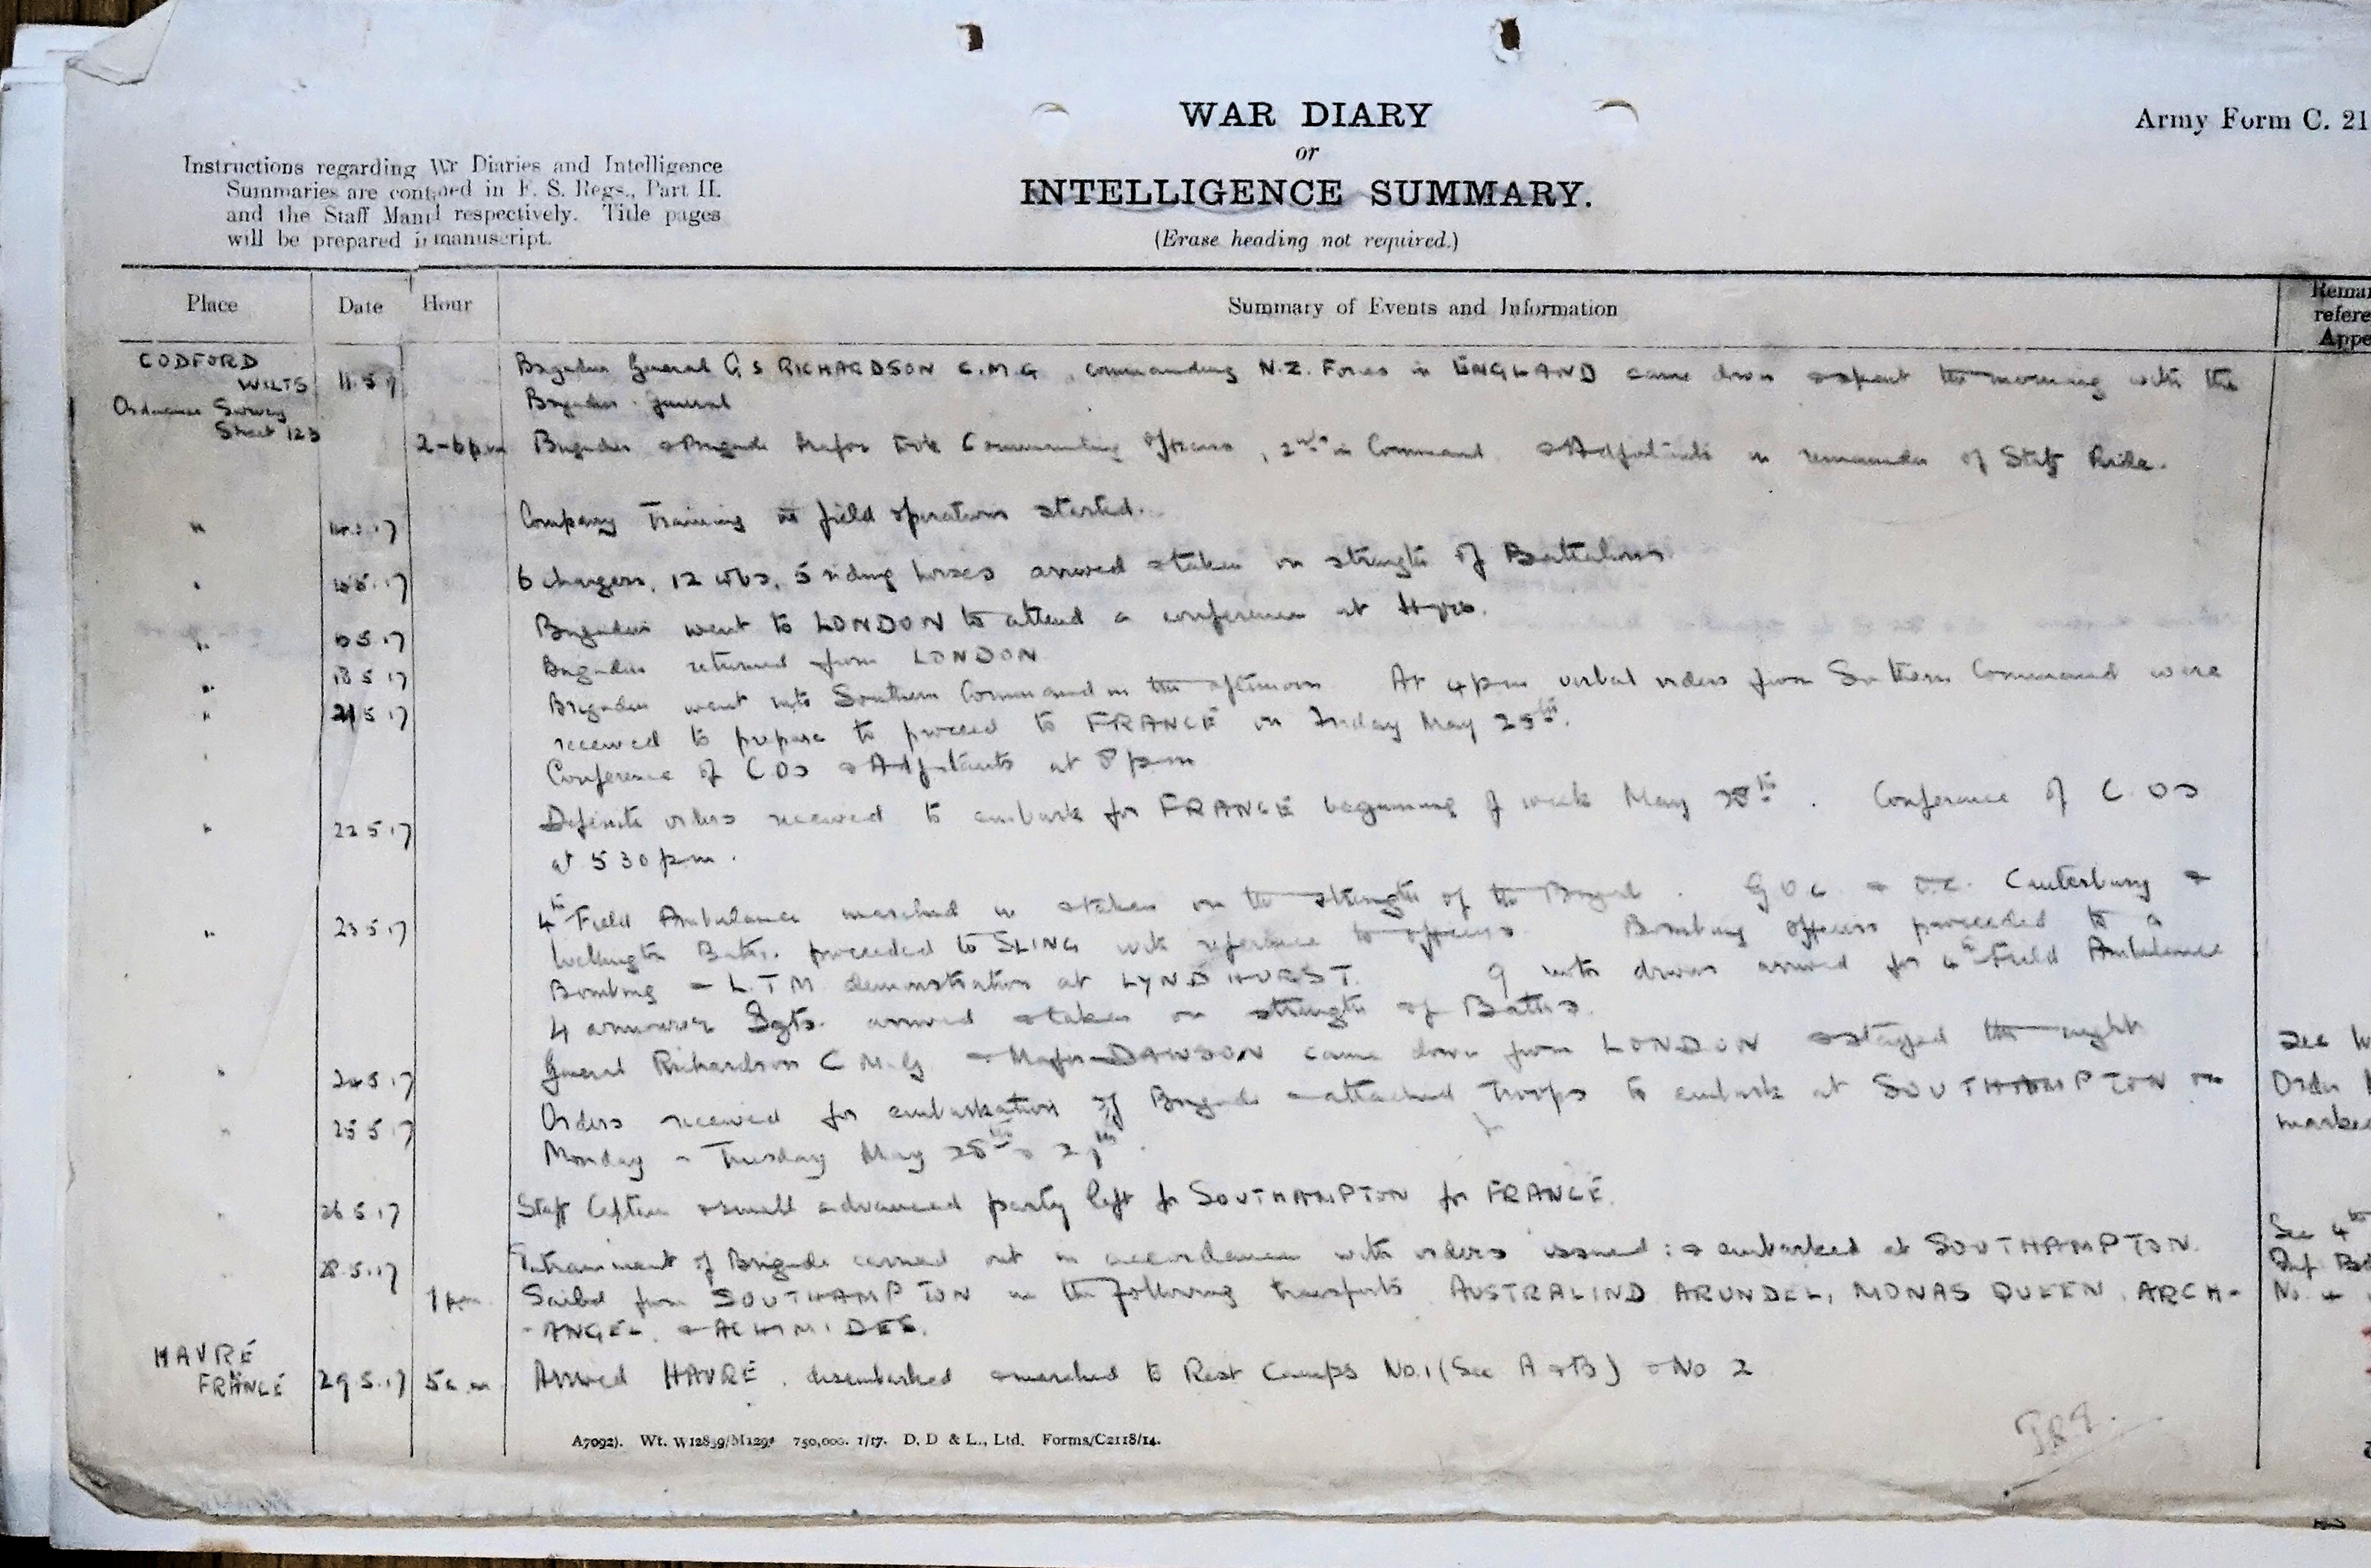 WAR DIARY
or
INTELLIGENCE SUMMARY.
(Erase heading not required.)
Army Form C. 21
Instructions regarding War Diaries and Intelligence
Summaries are contained in F. S. Regs., Part II.
and the Staff Manual respectively. Title pages
will be prepared in manuscript.
Place Date Hour Summary of Events and Information Remar
refere
Appe
CODFORD
WILTS 11.5.17 Brigadier General G S RICHARDSON C.M.G, commanding N.Z. Forces in ENGLAND came down & spent the morning with the
Ordnance Survey Brigadier General
Sheet 123
2-6pm Brigadier & Brigade Major took Commanding Officers, 2nds in Command & Adjutants in remainder of Staff Ride.
" Company Training in field operations started.
6 chargers, 12 5 riding horses arrived & taken on strength of Battalions.
Brigadier went to LONDON to attend a conference at Hqrs.
" 18 5 17 Brigadier returned from LONDON
" 21 5 17 Brigadier went into Southern Command in the afternoon. At 4pm verbal orders from Southern Command were
received to prepare to proceed to FRANCE on Friday May 25th.
Conference of COs & Adjutants at 8 pm
" 22 5 17 Definite orders received to embark for FRANCE beginning of week May 28th. Conference of C.Os
at 5 30 pm.
" 23 5 17 4th Field Ambulance marched in & taken on the strength of the Brigade. G O C & Canterbury &
Wellington Batts. proceeded to SLING with reference to officers. Bombing Officers proceeded to a
Bombing & L.T.M demonstration at LYNDHURST. 9 motor drivers arrived for 4th Field Ambulance
4 armourer Sgts. arrived & taken on strength of Battns.
" 24 5 17 General Richardson C.M.G & Major DAWSON came down from LONDON & stayed the night See
" 25 5 17 Orders received for embarkation of Brigade & attached Troops to embark at SOUTHAMPTON on Order
Monday & Tuesday May 28th & 29th. marked
" 26 5.17 Staff Captain & small advanced party left for SOUTHAMPTON for FRANCE.
28.5.17 Entrainment of Brigade carried out in accordance with orders issued: & embarked at SOUTHAMPTON. See 4th
Inf. Bd
1 pm Sailed from SOUTHAMPTON in the following transports AUSTRALIND ARUNDEL, MONAS QUEEN, ARCH- No. 4
-ANGEL, & ACHIMIDES.
HAVRE
FRANCE 29 5.17 5 a.m Arrived HAVRE, disembarked & marched to Rest Camps No.1 (See A & B) & No 2
A7092). Wt. W12839/M1293 750,000. 1/17. D. D & L., Ltd. Forms/C2118/14.